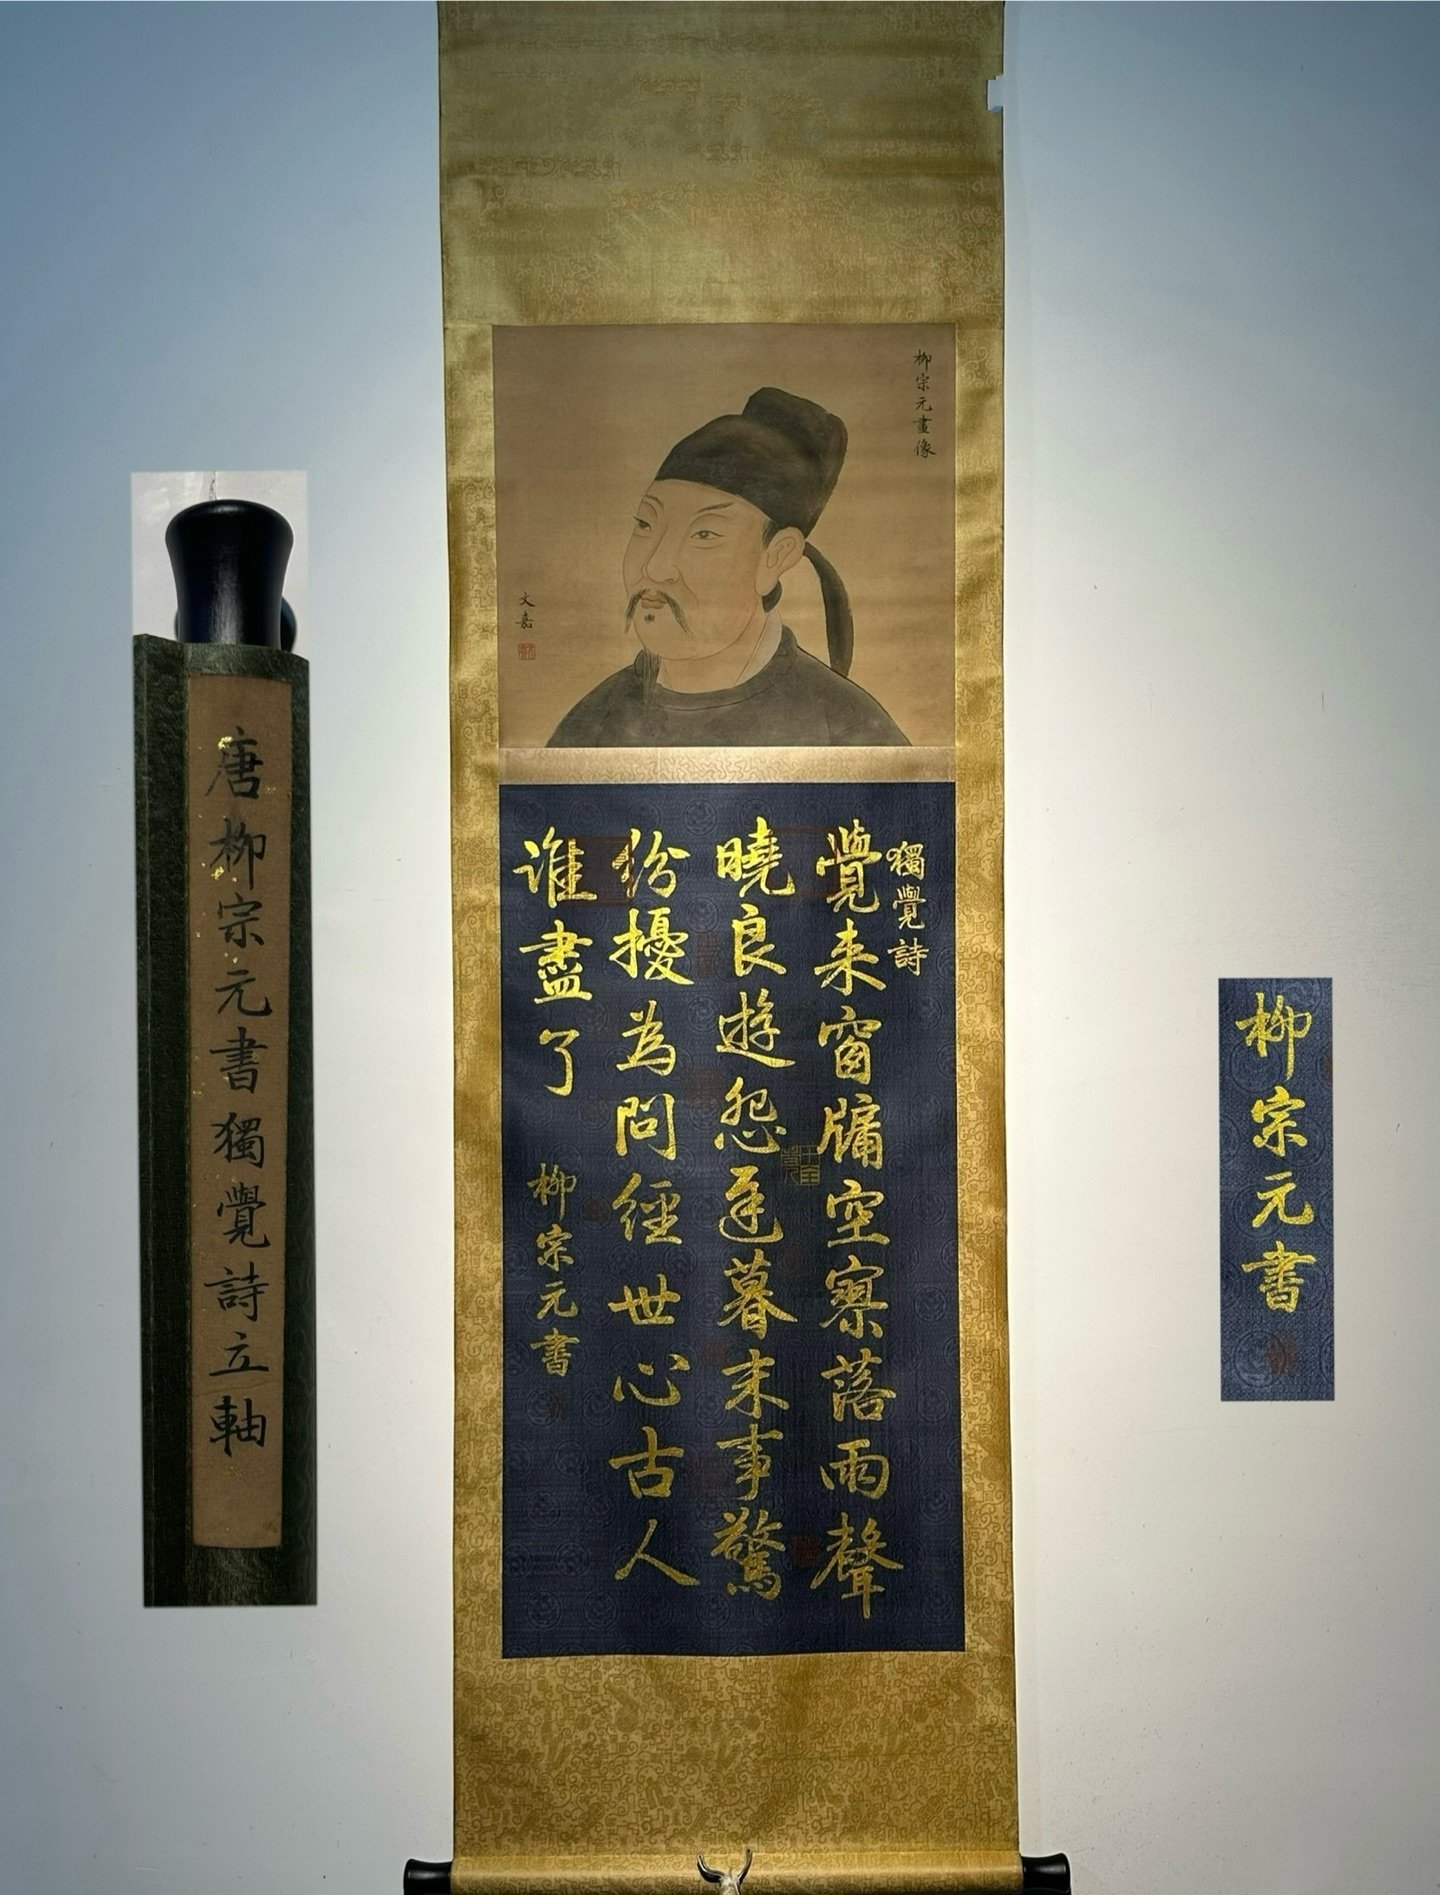 柳宗元畫像
文嘉
獨覺詩
覺来窗牖空寥落雨聲
曉良遊怨遲暮末事驚
紛擾為問經世心古人
谁盡了
柳宗元書
唐柳宗元書獨覺詩立軸
柳宗元書